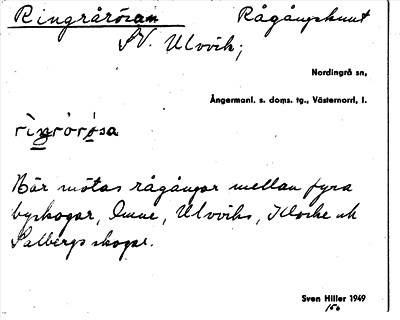 Ringrårösan Rågångsknut
SV. Ulvvik;
Nordingrå sn,
Ångermanl. s. doms. tg., Västernorrl, l.
rìŋrórǿsa
Här mötas rågångar mellan fyra
byskogar, Omne, Ulvviks, Klocke och
Salbergs skogar.
Sven Hiller 1949